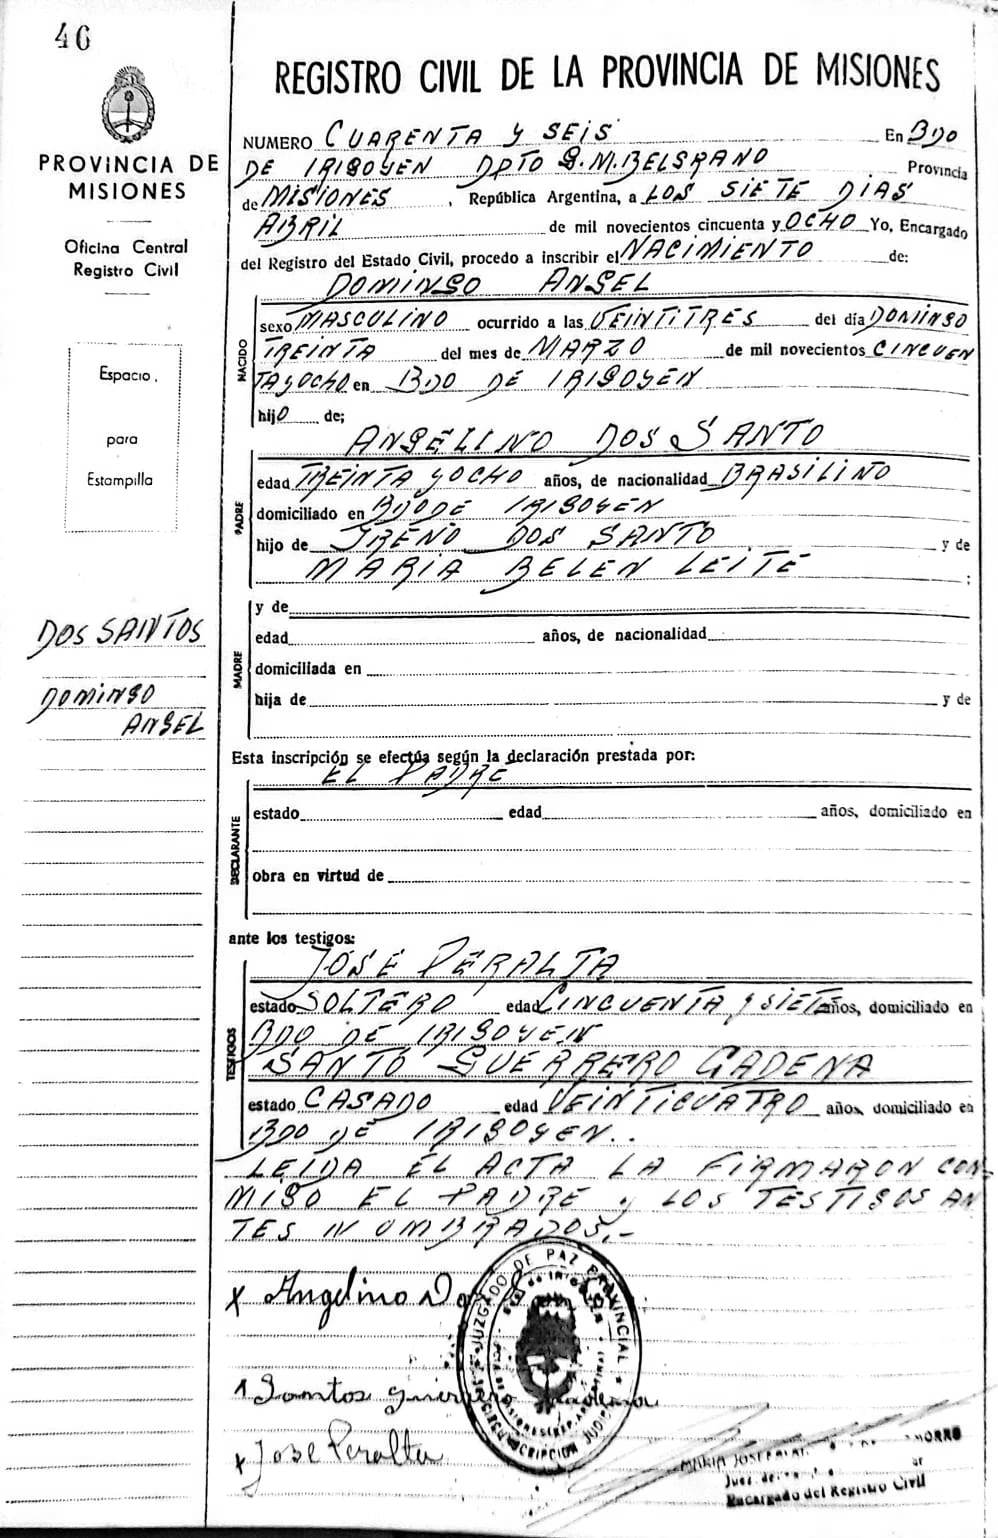 46
REGISTRO CIVIL DE LA PROVINCIA DE MISIONES
PROVINCIA DE
MISIONES
Oficina Central
Registro Civil
Espacio
para
Estampilla
DOS SANTOS
DOMINGO
ANGEL
NUMERO CUARENTA Y SEIS En BDO
DE IRIGOYEN DPTO G.M.BELGRANO Provincia
de MISIONES, República Argentina, a LOS SIETE DIAS
ABRIL de mil novecientos cincuenta y OCHO Yo, Encargado
del Registro del Estado Civil, procedo a inscribir el NACIMIENTO de:
DOMINGO ANGEL
NACIDO
sexo MASCULINO ocurrido a las VEINTITRES del día DOMINGO
TREINTA del mes de MARZO de mil novecientos CINCUEN
TAYOCHO en BDO DE IRIGOYEN
hijO de;
ANGELINO DOS SANTO
PADRE
edad TREINTA YOCHO años, de nacionalidad BRASILINO
domiciliado en BDO DE IRIGOYEN
hijo de IRENO DOS SANTO y de
MARIA BELEN LEITE ;
MADRE
y de
edad años, de nacionalidad
domiciliada en
hija de y de
Esta inscripción se efectúa según la declaración prestada por:
EL PADRE
DECLARANTE
estado edad años, domiciliado en
obra en virtud de
ante los testigos:
JOSE PERALTA
TESTIGOS
estado SOLTERO edad CINCUENTA Y SIETE años, domiciliado en
BDO DE IRIGOYEN
SANTO GUERRERO CADENA
estado CASADO edad VEINTICUATRO años, domiciliado en
BDO DE IRIGOYEN..
LEIDA EL ACTA LA FIRMARON CON-
MIGO EL PADRE y LOS TESTIGOS AN
TES NOMBRADOS.-
x Angelino Dos
JUZGADO DE PAZ PROVINCIAL
CIRCUNSCRIPCION JUDICIAL
Santos guerrero cadena
x Jose Peralta
MARIA
Encargado del Registro Civil